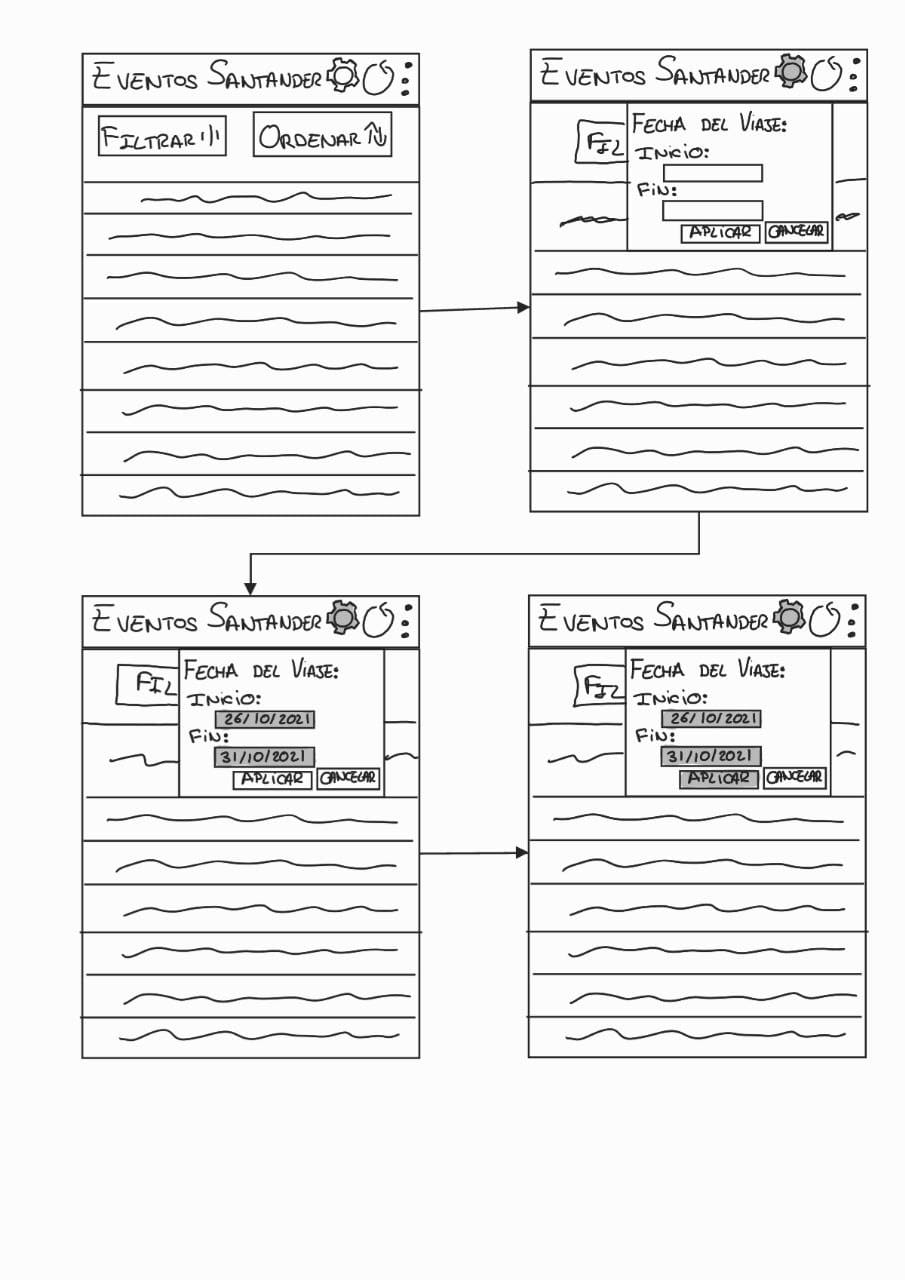 EVENTOS SANTANDER
FILTRAR
ORDENAR
EVENTOS SANTANDER
FIL
FECHA DEL VIAJE:
INICIO:
FIN:
APLICAR CANCELAR
EVENTOS SANTANDER
FIL
FECHA DEL VIAJE:
INICIO:
26/10/2021
FIN:
31/10/2021
APLICAR CANCELAR
EVENTOS SANTANDER
FIL
FECHA DEL VIAJE:
INICIO:
26/10/2021
FIN:
31/10/2021
APLICAR CANCELAR